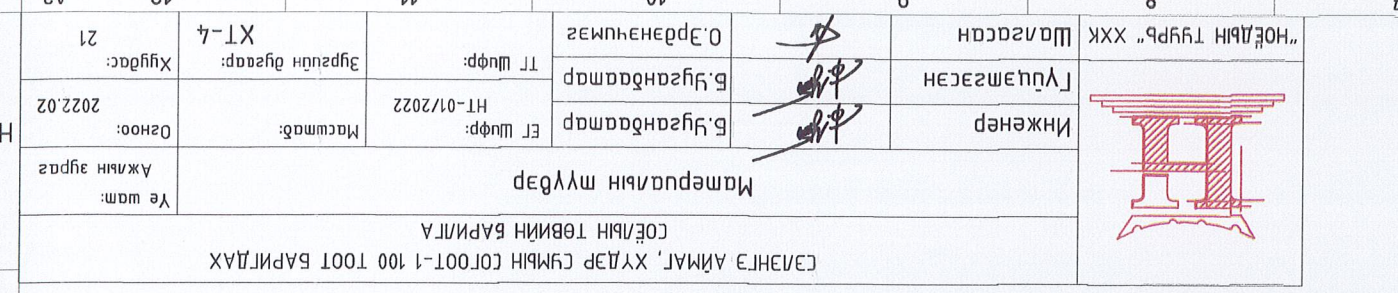 СЭЛЭНГЭ АЙМАГ, ХҮДЭР СУМЫН СОГООТ-1 100 ТООТ БАРИГДАХ
СОЁЛЫН ТӨВИЙН БАРИЛГА
Материалын түүвэр
Үе шат:
Ажлын зураг
"НОЁДЫН ТУУРЬ" ХХК
Инженер
Б.Уугандбаатар
ЕГ Шифр:
НТ-01/2022
Масштаб:
Огноо:
2022.02
Гүйцэтгэсэн
Б.Ууганбаатар
Шалгасан
О.Эрдэнэчимэг
ТГ Шифр:
Зургийн дугаар:
ХТ-4
Хуудас:
21
Н